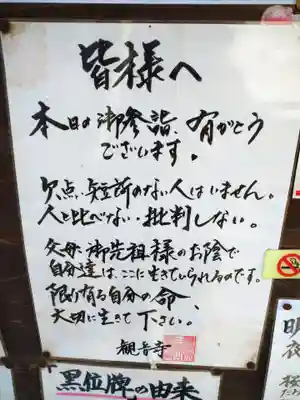 皆様へ
本日の御参詣、有がとう
ございます。
欠点、短所のない人はいません。
人と比べない、批判しない。
父母、御先祖様のお陰で
自分達は、ここに生きていられるのです。
限り有る自分の命、
大切に生きて下さい。
観音寺
黒位牌の由来